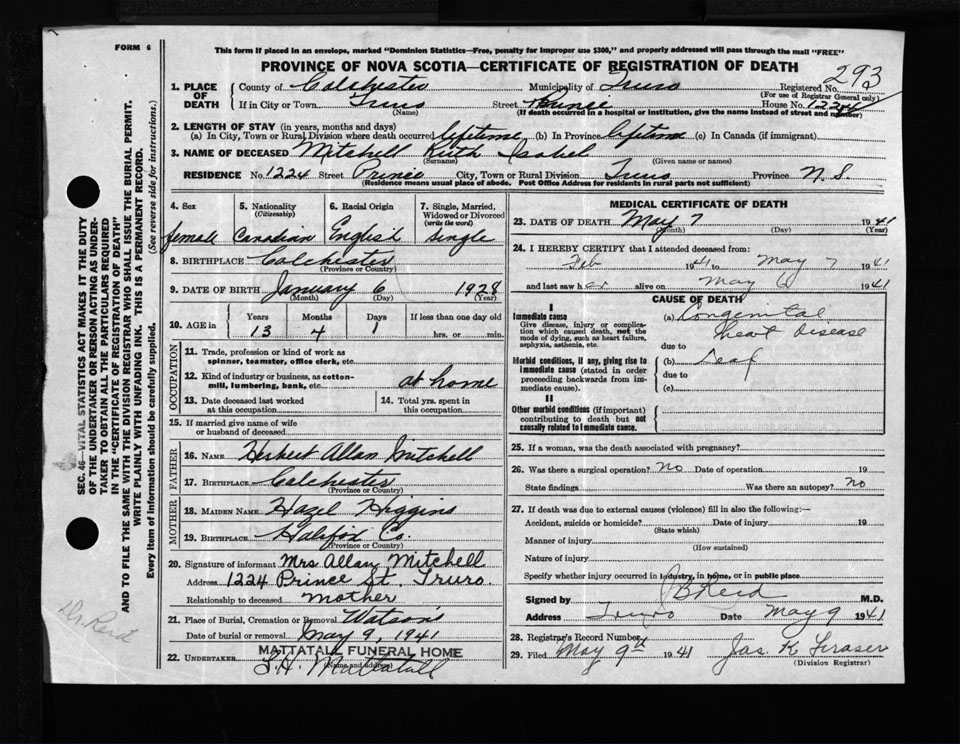 FORM 6
This form if placed in an envelope, marked "Dominion Statistics—Free, penalty for improper use $300," and properly addressed will pass through the mail "FREE"
PROVINCE OF NOVA SCOTIA—CERTIFICATE OF REGISTRATION OF DEATH
293
1. PLACE OF DEATH County of Colchester Municipality of Truro Registered No.
(For use of Registrar General only)
If in City or Town Truro Street Prince House No. 1224
(Name) (If death occurred in a hospital or institution, give the name instead of street and number)
2. LENGTH OF STAY (in years, months and days)
(a) In City, Town or Rural Division where death occurred lifetime (b) In Province lifetime (c) In Canada (if immigrant)
3. NAME OF DECEASED Mitchell Ruth Isobel
(Surname) (Given name or names)
RESIDENCE No. 1224 Street Prince City, Town or Rural Division Truro Province N.S.
(Residence means usual place of abode. Post Office Address for residents in rural parts not sufficient)
4. Sex 5. Nationality (Citizenship) 6. Racial Origin 7. Single, Married, Widowed or Divorced (write the word)
female Canadian English Single
8. BIRTHPLACE Colchester
(Province or Country)
9. DATE OF BIRTH January 6 1928
(Month) (Day) (Year)
10. AGE in Years Months Days If less than one day old
13 4 1 hrs. or min.
OCCUPATION
11. Trade, profession or kind of work as spinner, teamster, office clerk, etc.
12. Kind of industry or business, as cotton-mill, lumbering, bank, etc. at home
13. Date deceased last worked at this occupation 14. Total yrs. spent in this occupation
15. If married give name of wife or husband of deceased
FATHER
16. NAME Herbert Allan Mitchell
17. BIRTHPLACE Colchester
(Province or Country)
MOTHER
18. MAIDEN NAME Hazel Higgins
19. BIRTHPLACE Halifax Co.
(Province or Country)
20. Signature of informant Mrs Allan Mitchell
Address 1224 Prince St. Truro.
Relationship to deceased mother
21. Place of Burial, Cremation or Removal Watson's
Date of burial or removal May 9, 1941
MATTATALL FUNERAL HOME
22. UNDERTAKER L.H. Mattatall
(Name and address)
MEDICAL CERTIFICATE OF DEATH
23. DATE OF DEATH May 7 1941
(Month) (Day) (Year)
24. I HEREBY CERTIFY that I attended deceased from:
Feb 1941 to May 7 1941
and last saw her alive on May 6 1941
CAUSE OF DEATH
I
Immediate cause (a) Congenital
Give disease, injury or complication which caused death, not the mode of dying, such as heart failure, asphyxia, asthenia, etc.
heart Disease
due to
Morbid conditions, if any, giving rise to immediate cause (stated in order proceeding backwards from immediate cause).
(b) Deaf
due to
(c)
II
Other morbid conditions (if important) contributing to death but not causally related to immediate cause.
25. If a woman, was the death associated with pregnancy?
26. Was there a surgical operation? No Date of operation 19
State findings Was there an autopsy? No
27. If death was due to external causes (violence) fill in also the following:—
Accident, suicide or homicide? Date of injury 19
(State which)
Manner of injury
(How sustained)
Nature of injury
Specify whether injury occurred in industry, in home, or in public place
Signed by J B Reid M.D.
Address Truro Date May 9 1941
28. Registrar's Record Number
29. Filed May 9th 1941 Jas. R Fraser
(Division Registrar)
SEC. 46—VITAL STATISTICS ACT MAKES IT THE DUTY
OF THE UNDERTAKER OR PERSON ACTING AS UNDER-
TAKER TO OBTAIN ALL THE PARTICULARS REQUIRED
IN THE "CERTIFICATE OF REGISTRATION OF DEATH"
AND TO FILE THE SAME WITH THE DIVISION REGISTRAR WHO SHALL ISSUE THE BURIAL PERMIT.
WRITE PLAINLY WITH UNFADING INK. THIS IS A PERMANENT RECORD.
Every item of information should be carefully supplied. (See reverse side for instructions.)
Dr Reid